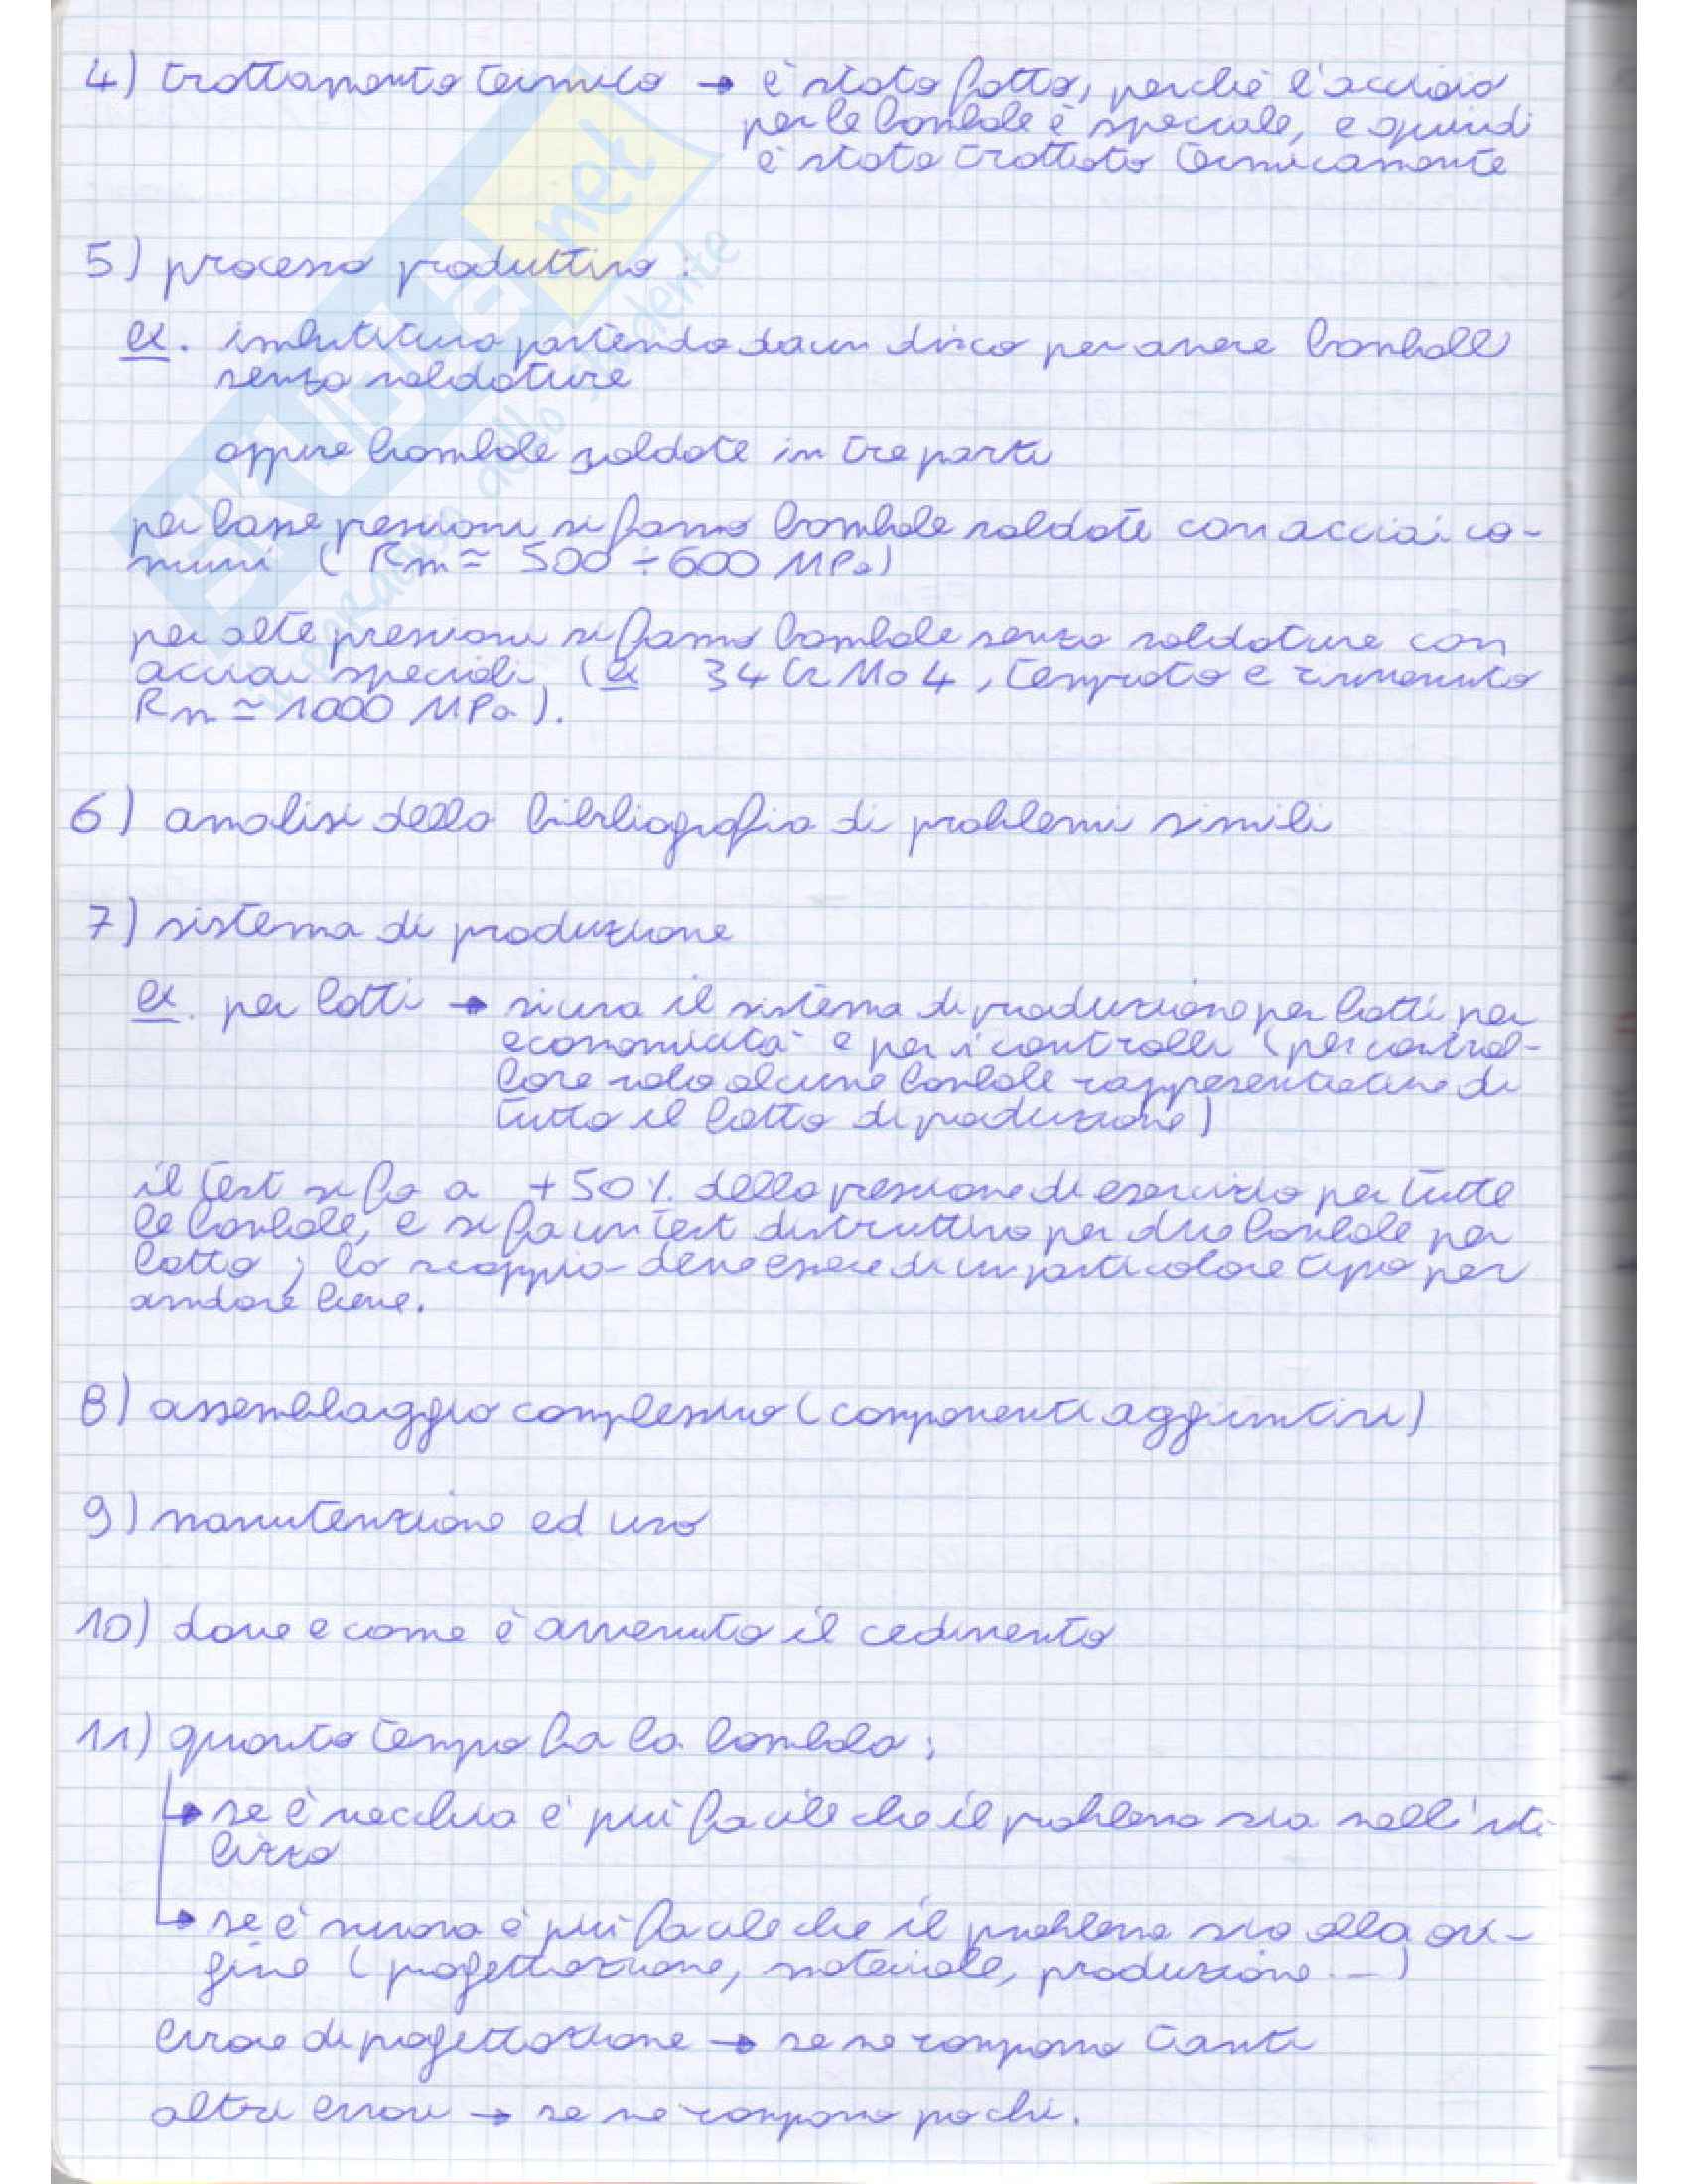 4) trattamento termico → è stato fatto, perché l'acciaio
per le bombole è speciale, e quindi
è stato trattato termicamente
5) processo produttivo :
ex. imbutitura partendo da un disco per avere bombole
senza saldature
oppure bombole saldate in tre parti
per basse pressioni si fanno bombole saldate con acciai co-
muni ( Rm ≃ 500 ÷ 600 MPa)
per alte pressioni si fanno bombole senza saldature con
acciai speciali (ex 34 Cr Mo 4, temprato e rinvenuto
Rm ≃ 1000 MPa ).
6) analisi della bibliografia di problemi simili
7) sistema di produzione
ex. per lotti → si usa il sistema di produzione per lotti per
economicità e per i controlli (per control-
lare solo alcune bombole rappresentative di
tutto il lotto di produzione)
il test si fa a +50% della pressione di esercizio per tutte
le bombole, e si fa un test distruttivo per due bombole per
lotto ; lo scoppio deve essere di un particolare tipo per
andare bene.
8) assemblaggio complessivo (componenti aggiuntivi)
9) manutenzione ed uso
10) dove e come è avvenuto il cedimento
11) quanto tempo ha la bombola :
→ se è vecchia è più facile che il problema sia nell'uti-
lizzo
→ se è nuova è più facile che il problema sia alla ori-
gine ( progettazione, materiale, produzione ...)
errore di progettazione → se ne rompono tanti
altri errori → se ne rompono pochi.
SKUOLA.net
il paradiso dello studente